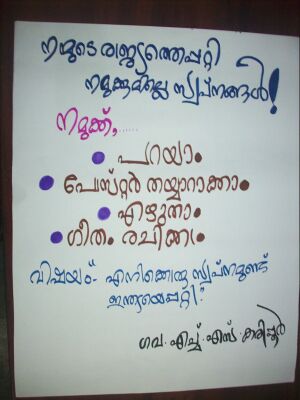 നമ്മുടെ രാജ്യത്തെപ്പറ്റി
നമുക്കുമില്ലെ സ്വപ്നങ്ങൾ!
നമുക്ക്,......
പറയാം
പോസ്റ്റർ തയ്യാറാക്കാം
എഴുതാം
ഗീതം രചിക്കാം
വിഷയം:- എനിക്കൊരു സ്വപ്നമുണ്ട്
ഇന്ത്യയെപ്പറ്റി.
ഗവ. എച്ച്. എസ്. കരിപ്പൂർ